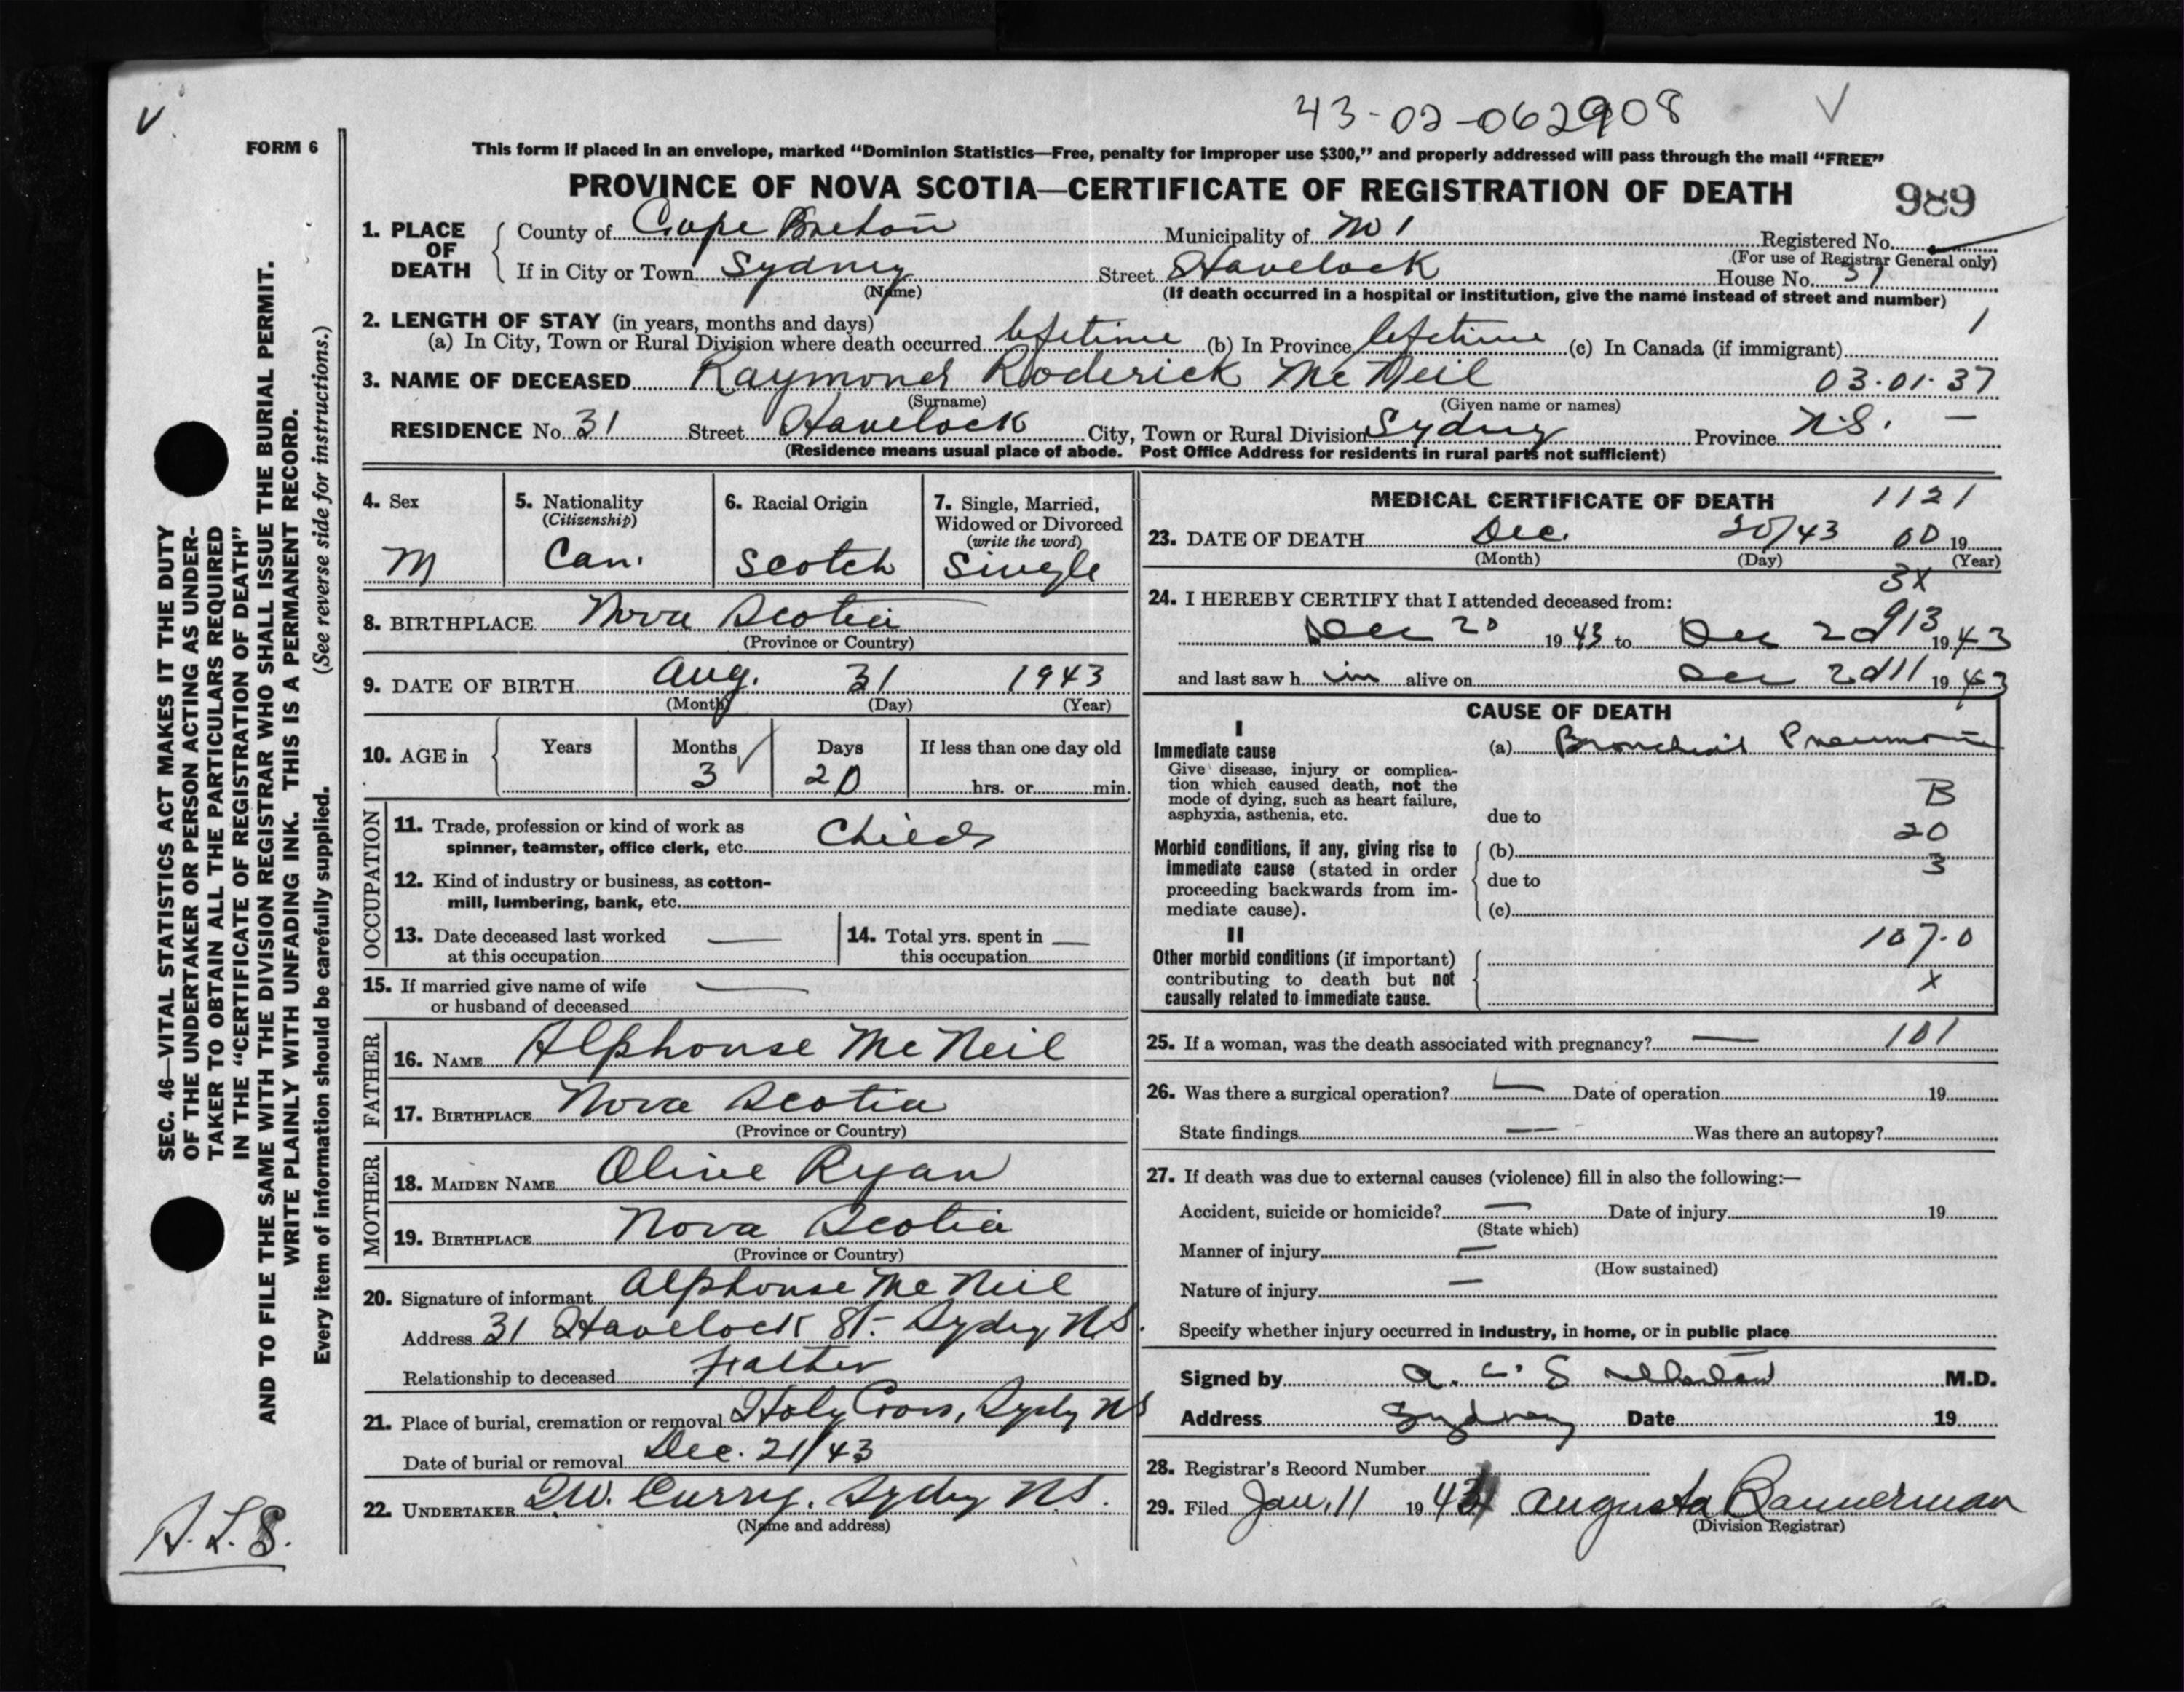 43-02-062908
V
V
FORM 6
This form if placed in an envelope, marked “Dominion Statistics—Free, penalty for improper use $300,” and properly addressed will pass through the mail “FREE”
PROVINCE OF NOVA SCOTIA—CERTIFICATE OF REGISTRATION OF DEATH
989
1. PLACE OF DEATH
County of Cape Breton Municipality of No 1 Registered No.
(For use of Registrar General only)
If in City or Town Sydney Street Havelock House No. 31
(Name)
(If death occurred in a hospital or institution, give the name instead of street and number)
2. LENGTH OF STAY (in years, months and days) 1
(a) In City, Town or Rural Division where death occurred lifetime (b) In Province lifetime (c) In Canada (if immigrant)
3. NAME OF DECEASED Raymond Roderick Mc Neil 03.01.37
(Surname) (Given name or names)
RESIDENCE No. 31 Street Havelock City, Town or Rural Division Sydney Province N.S. —
(Residence means usual place of abode. Post Office Address for residents in rural parts not sufficient)
4. Sex
M
5. Nationality
(Citizenship)
Can.
6. Racial Origin
Scotch
7. Single, Married,
Widowed or Divorced
(write the word)
Single
8. BIRTHPLACE Nova Scotia
(Province or Country)
9. DATE OF BIRTH Aug. 31 1943
(Month) (Day) (Year)
10. AGE in
Years Months Days If less than one day old
3 20 hrs. or min.
OCCUPATION
11. Trade, profession or kind of work as
spinner, teamster, office clerk, etc. Child
12. Kind of industry or business, as cotton-
mill, lumbering, bank, etc.
13. Date deceased last worked —
at this occupation
14. Total yrs. spent in —
this occupation
15. If married give name of wife —
or husband of deceased
FATHER
16. NAME Alphonse Mc Neil
17. BIRTHPLACE Nova Scotia
(Province or Country)
MOTHER
18. MAIDEN NAME Olive Ryan
19. BIRTHPLACE Nova Scotia
(Province or Country)
20. Signature of informant Alphonse Mc Neil
Address 31 Havelock St- Sydney N.S.
Relationship to deceased Father
21. Place of burial, cremation or removal Holy Cross, Sydney NS
Date of burial or removal Dec. 21/43
22. UNDERTAKER Curry, Sydney N.S.
(Name and address)
MEDICAL CERTIFICATE OF DEATH 1121
23. DATE OF DEATH Dec. 20/43 00 19
(Month) (Day) (Year)
3X
24. I HEREBY CERTIFY that I attended deceased from:
913
Dec 20 1943 to Dec 20 1943
and last saw h im alive on Dec 20 11 1943
CAUSE OF DEATH
I
Immediate cause
Give disease, injury or complica-
tion which caused death, not the
mode of dying, such as heart failure,
asphyxia, asthenia, etc.
(a) Bronchial Pneumonia
B
due to
20
Morbid conditions, if any, giving rise to
immediate cause (stated in order
proceeding backwards from im-
mediate cause).
(b)
3
due to
(c)
II
Other morbid conditions (if important)
contributing to death but not
causally related to immediate cause.
107.0
X
25. If a woman, was the death associated with pregnancy? — 101
26. Was there a surgical operation? — Date of operation 19
State findings — Was there an autopsy?
27. If death was due to external causes (violence) fill in also the following:—
Accident, suicide or homicide? — Date of injury 19
(State which)
Manner of injury —
(How sustained)
Nature of injury —
Specify whether injury occurred in industry, in home, or in public place
Signed by M.D.
Address Sydney Date 19
28. Registrar's Record Number
29. Filed Jan. 11 1944 Augusta Bannerman
(Division Registrar)
SEC. 46—VITAL STATISTICS ACT MAKES IT THE DUTY
OF THE UNDERTAKER OR PERSON ACTING AS UNDER-
TAKER TO OBTAIN ALL THE PARTICULARS REQUIRED
IN THE “CERTIFICATE OF REGISTRATION OF DEATH”
AND TO FILE THE SAME WITH THE DIVISION REGISTRAR WHO SHALL ISSUE THE BURIAL PERMIT.
WRITE PLAINLY WITH UNFADING INK. THIS IS A PERMANENT RECORD.
Every item of information should be carefully supplied. (See reverse side for instructions.)